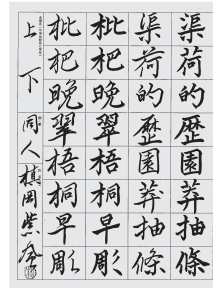 渠荷的歷園莽抽條
渠荷的歷園莽抽條
枇杷晚翠梧桐早彫
枇杷晚翠梧桐早彫
上下同人